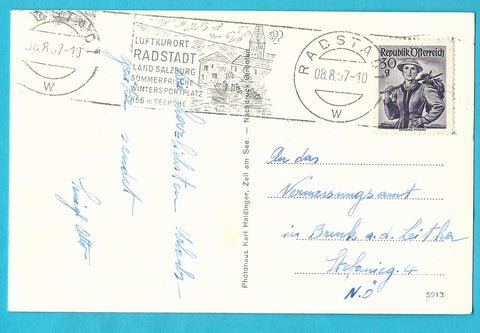 08.8.57-10
W
LUFTKURORT
RADSTADT
LAND SALZBURG
SOMMERFRISCHE
WINTERSPORTPLATZ
856 m SEEHÖHE
RADSTADT
08.8.57-10
W
Republik Österreich
30
g
herzlichsten Urlaubs
grüße sendet
Otto
Photohaus Karl Haidinger, Zell am See. — Nachdruck verboten
An das
Vermessungsamt
in Bruck a.d. Leitha
Stefanieg. 4
N.Ö
5913